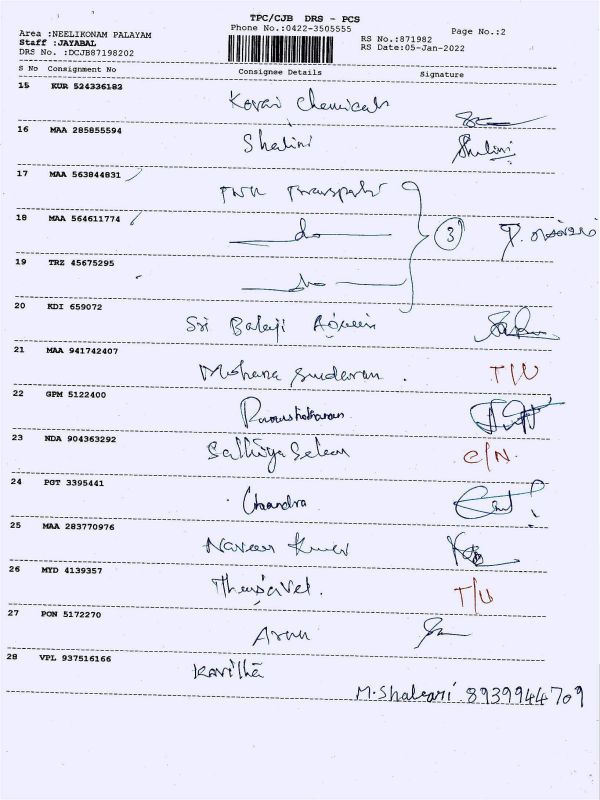 TPC/CJB DRS - PCS
Phone No.:0422-3505555
Page No.:2
Area :NEELIKONAM PALAYAM
Staff :JAYABAL
DRS No. :DCJB87198202
RS No.:871982
RS Date:05-Jan-2022
S No Consignment No Consignee Details Signature
15 KUR 524336182 Kovai Chemicals
16 MAA 285855594 Shalini Shalini
17 MAA 563844831
18 MAA 564611774 do 3
19 TRZ 45675295 do
20 KDI 659072 Sri Balaji
21 MAA 941742407 Mohana Sundaram . T/U
22 GPM 5122400
23 NDA 904363292 Sathiya Selan C/N.
24 PGT 3395441 Chandra
25 MAA 283770976 Naveen Kumar
26 MYD 4139357 T/U
27 PON 5172270 Arun
28 VPL 937516166 Kavitha
M. 8939944709